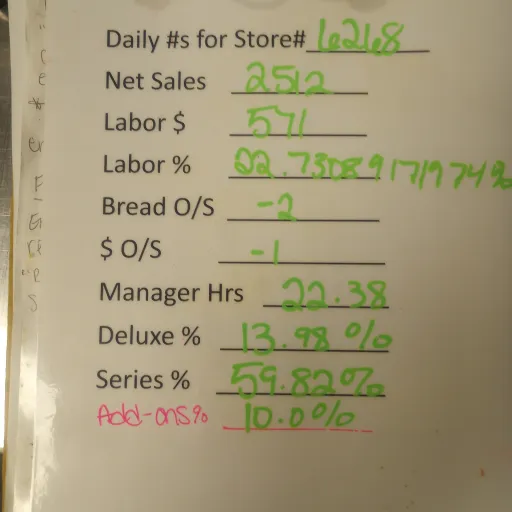 Daily #s for Store# 6268
Net Sales 2512
Labor $ 571
Labor % 22.73089171974%
Bread O/S -2
$ O/S -1
Manager Hrs 22.38
Deluxe % 13.98%
Series % 59.82%
Add-ons% 10.0%